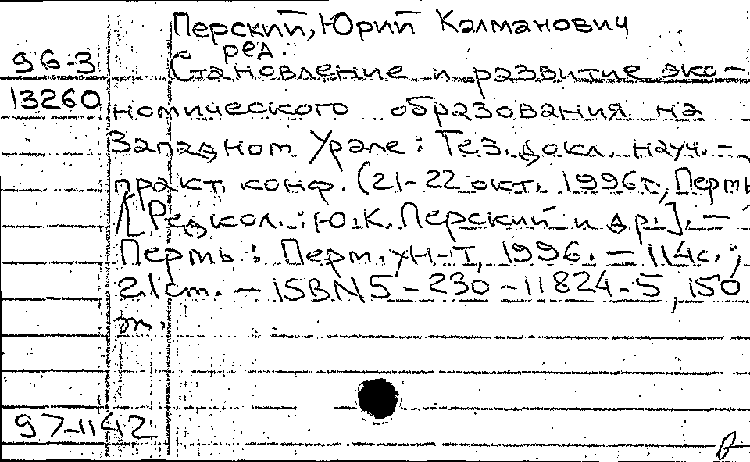 Перский, Юрий Калманович
ред.
96-3 Становление и развитие эко-
13260 номического образования на
Западном Урале : Тез. докл. науч.-
практ. конф. (21-22 окт. 1996 г., Пермь
/ [Редкол.: Ю.К. Перский и др.]. -
Пермь : Перм. ун-т, 1996. - 114 с. ;
21 cm. - ISBN 5-230-11824-5, 150
э.
97-1142